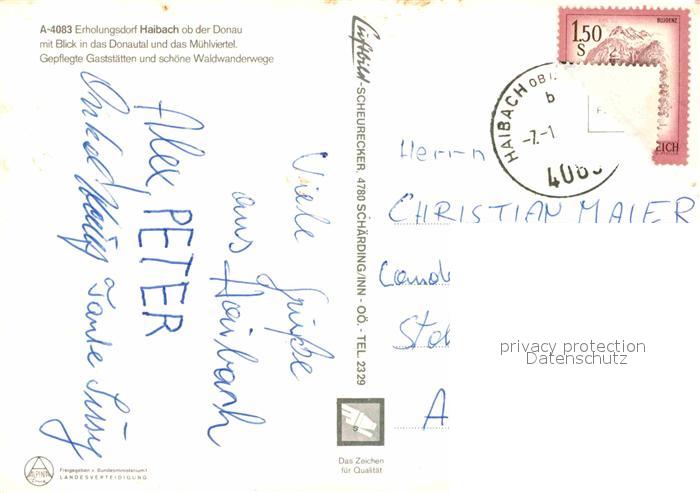 A-4083 Erholungsdorf Haibach ob der Donau
mit Blick in das Donautal und das Mühlviertel.
Gepflegte Gaststätten und schöne Waldwanderwege
Viele Grüße
aus Haibach
Alex, PETER
Onkel
Tante Sissy
Luftbild-SCHEURECKER, 4780 SCHÄRDING/INN - OÖ. - TEL. 2329
BLUDENZ
1.50
S
HAIBACH OB
b
-7.-1
408
Herrn
CHRISTIAN MAIER
privacy protection
Datenschutz
A
Das Zeichen
für Qualität
ALPINA
Freigegeben v. Bundesministerium f.
LANDESVERTEIDIGUNG